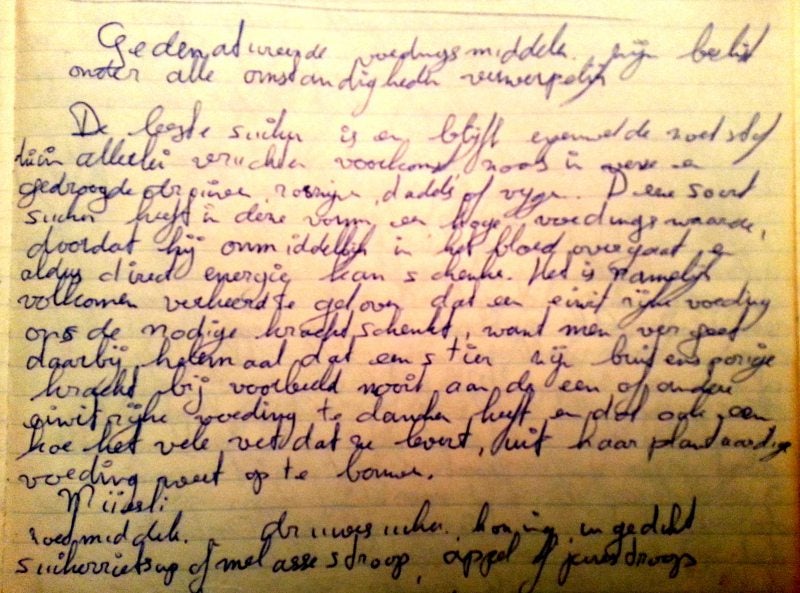 Gedenatureerde voedingsmiddelen zijn beslist
onder alle omstandigheden verwerpelijk
De beste suiker is en blijft evenwel de
in allerlei vruchten voorkomt zoals in verse en
gedroogde druiven, rozijnen, dadels of vijgen. Deze soort
suiker heeft in deze vorm een hoge voedingswaarde,
doordat hij onmiddellijk in het bloed overgaat en
aldus direct energie kan schenken. Het is namelijk
volkomen verkeerd te geloven dat een eiwitrijke voeding
ons de nodige kracht schenkt, want men vergeet
daarbij helemaal dat een stier zijn buitensporige
kracht bij voorbeeld nooit aan de een of andere
eiwitrijke voeding te danken heeft en dat ook een
koe het vele vet dat ze levert, uit haar plantaardige
voeding weet op te bouwen.
Müesli
druivesuiker, honing, ingedikt
suikerrietsap of melassestroop, appel of